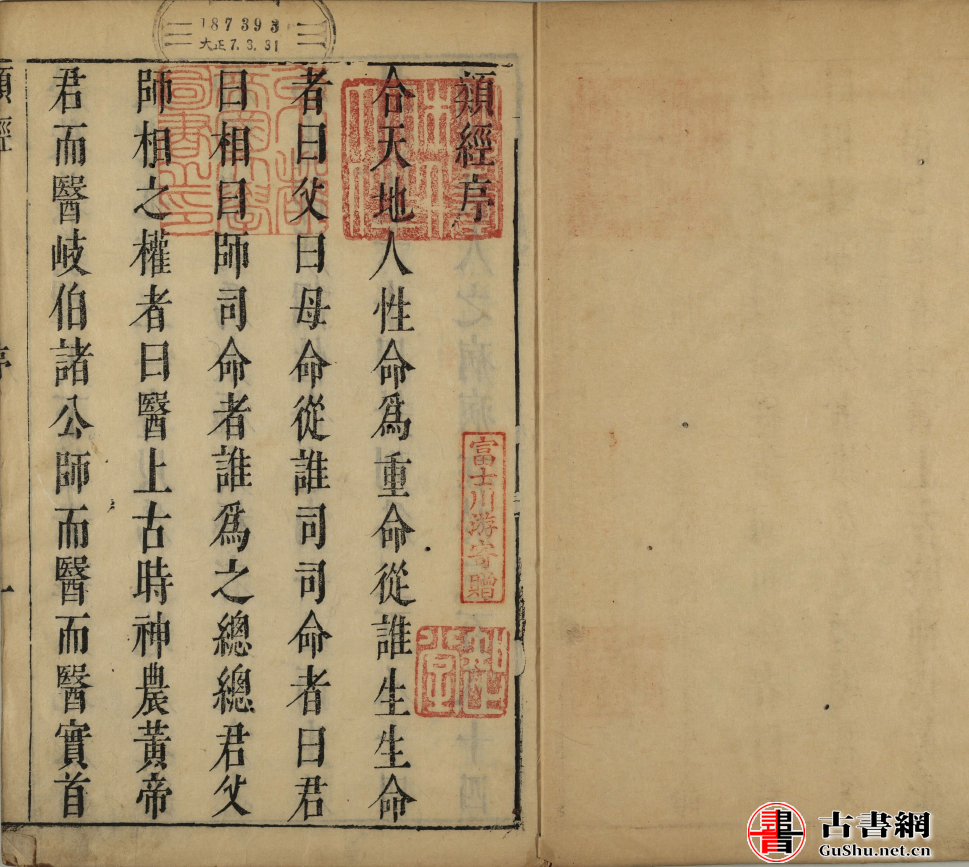 187393
大正7.3.31
類經序
合天地人性命爲重命從誰生生命
者曰父曰母命從誰司司命者曰君
曰相曰師司命者誰爲之總總君父
師相之權者曰醫上古時神農黃帝
君而醫岐伯諸公師而醫而醫實首
富士川游寄贈
類經
序
一
古書網
GuShu.net.cn